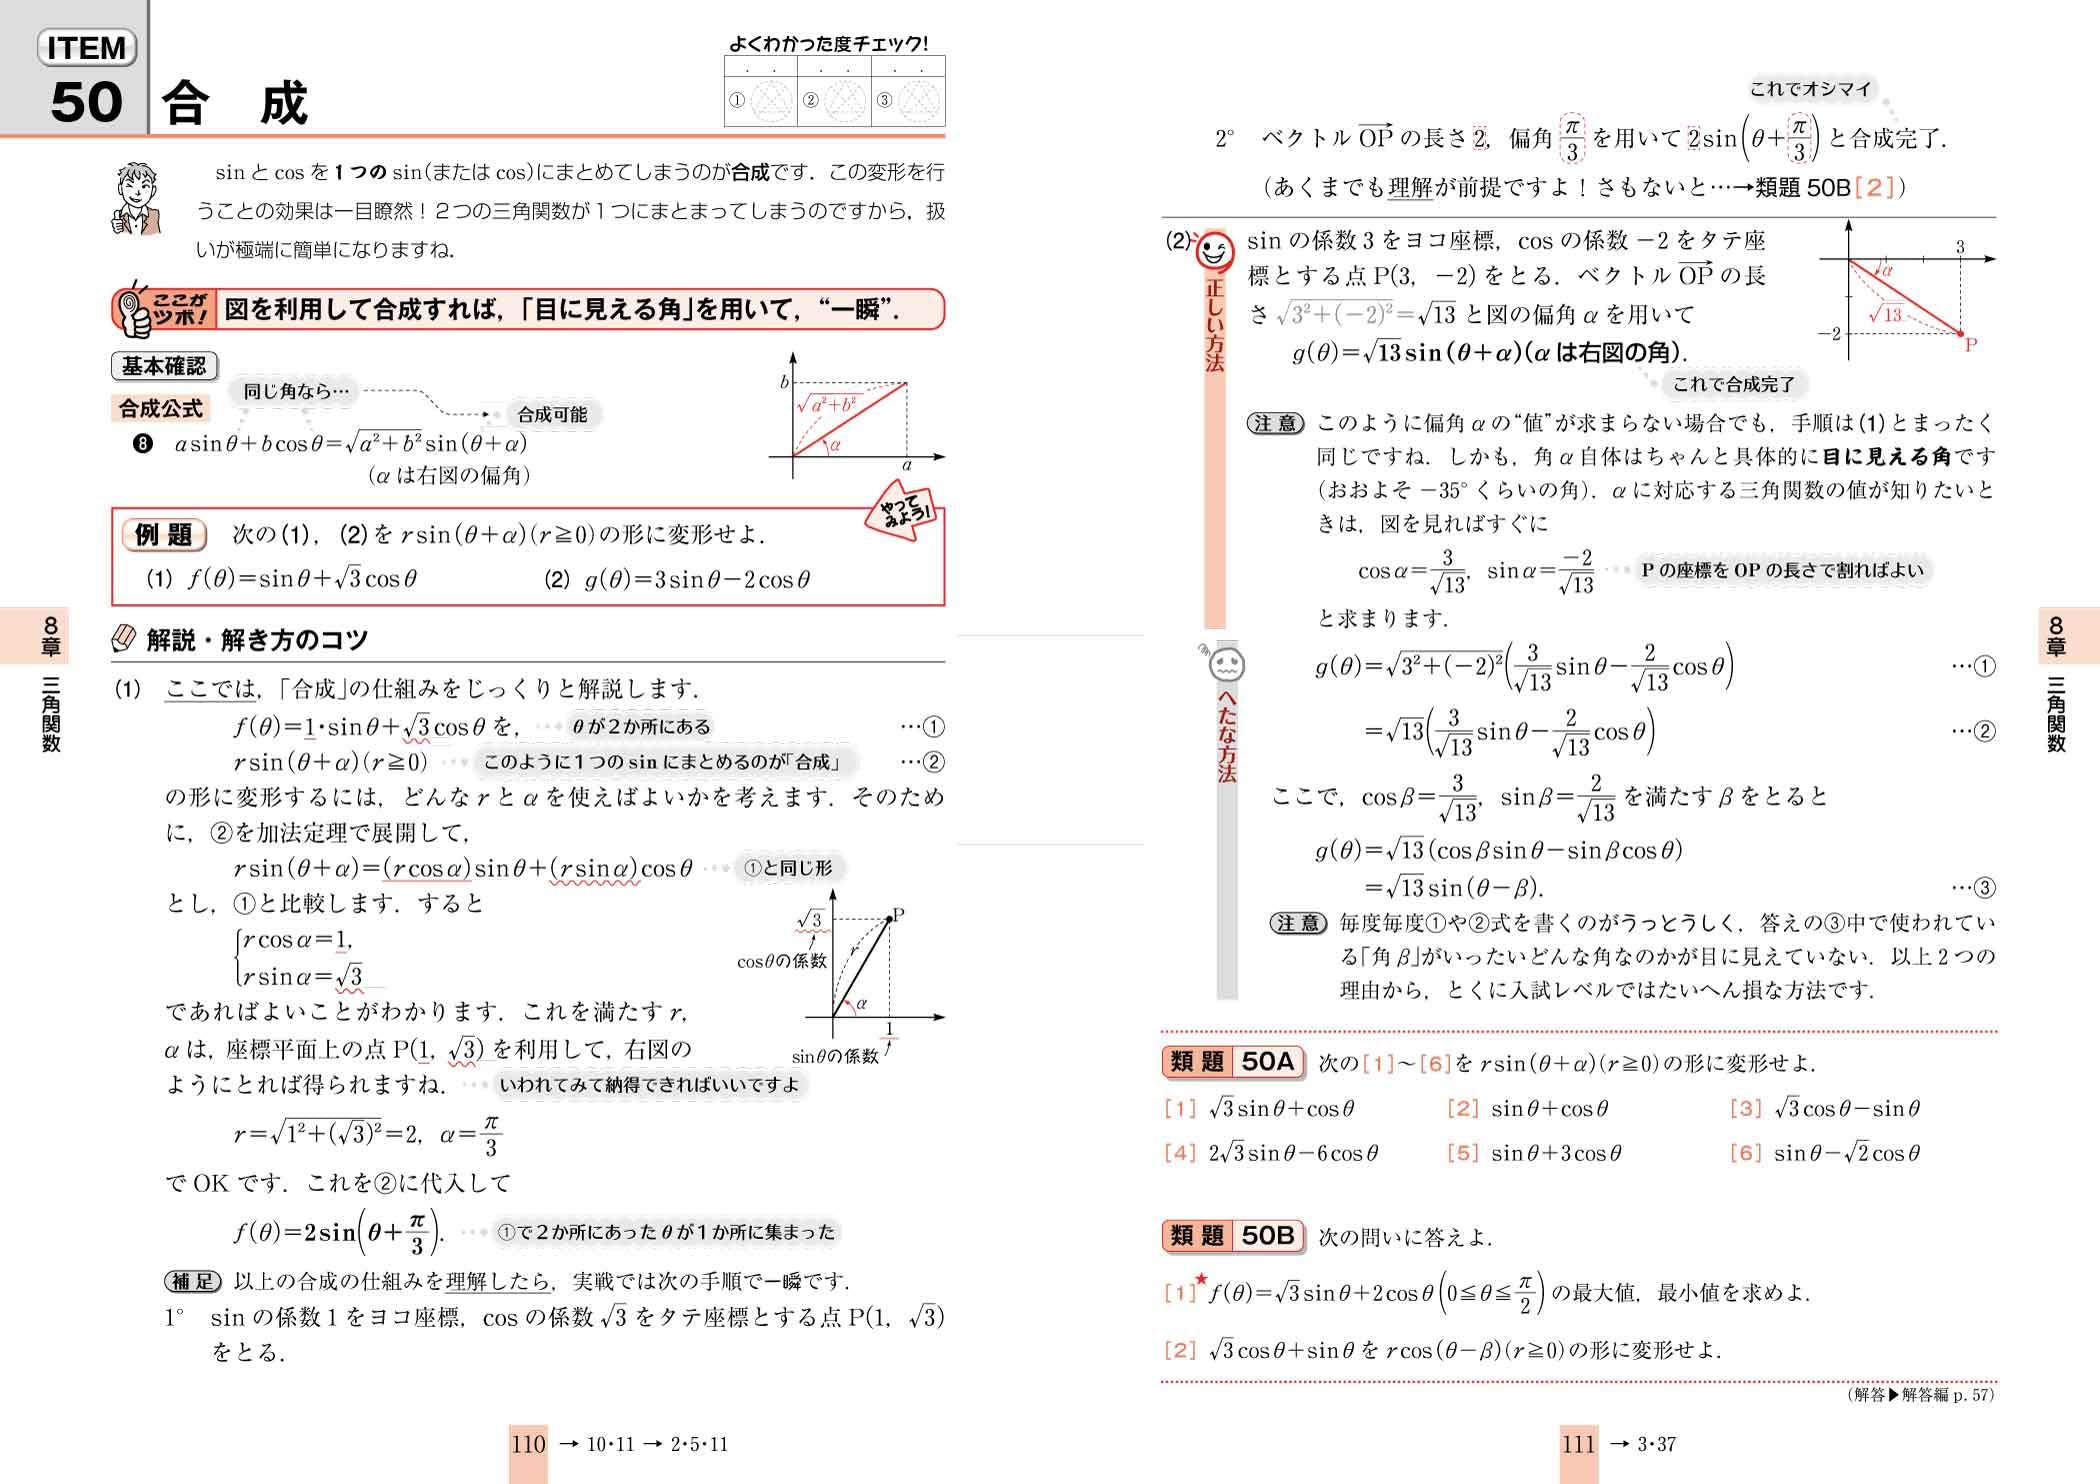 ITEM
50 合 成
よくわかった度チェック!
① ② ③
sin と cos を1つの sin(または cos)にまとめてしまうのが合成です．この変形を行
うことの効果は一目瞭然！２つの三角関数が１つにまとまってしまうのですから，扱
いが極端に簡単になりますね．
ここがツボ！ 図を利用して合成すれば，「目に見える角」を用いて，“一瞬”．
基本確認
同じ角なら…
合成公式
合成可能
❽ a sin θ + b cos θ = √(a²+b²) sin(θ+α)
(α は右図の偏角)
b
√(a²+b²)
α
a
やってみよう！
例題 次の(1)，(2)を r sin(θ+α)(r≧0)の形に変形せよ．
(1) f(θ)=sin θ+√3 cos θ (2) g(θ)=3 sin θ−2 cos θ
解説・解き方のコツ
(1) ここでは，「合成」の仕組みをじっくりと解説します．
f(θ)=1・sin θ+√3 cos θ を， θが２か所にある …①
r sin(θ+α)(r≧0) このように１つの sin にまとめるのが「合成」 …②
の形に変形するには，どんな r と α を使えばよいかを考えます．そのため
に，②を加法定理で展開して，
r sin(θ+α)=(r cos α)sin θ+(r sin α)cos θ ①と同じ形
とし，①と比較します．すると
{r cos α=1,
r sin α=√3
√3
P
r
cosθの係数
α
1
sinθの係数
であればよいことがわかります．これを満たす r，
α は，座標平面上の点 P(1, √3) を利用して，右図の
ようにとれば得られますね． いわれてみて納得できればいいですよ
r=√(1²+(√3)²)=2, α=π/3
で OK です．これを②に代入して
f(θ)=2sin(θ+π/3). ①で２か所にあった θ が１か所に集まった
補足 以上の合成の仕組みを理解したら，実戦では次の手順で一瞬です．
1° sin の係数 1 をヨコ座標，cos の係数 √3 をタテ座標とする点 P(1, √3)
をとる．
8章 三角関数
110 → 10・11 → 2・5・11
これでオシマイ
2° ベクトル OP→ の長さ 2，偏角 π/3 を用いて 2 sin(θ+π/3) と合成完了．
(あくまでも理解が前提ですよ！さもないと…→類題 50B[2])
(2) 正しい方法
sin の係数 3 をヨコ座標，cos の係数 −2 をタテ座
標とする点 P(3, −2) をとる．ベクトル OP→ の長
さ √(3²+(−2)²)=√13 と図の偏角 α を用いて
g(θ)=√13 sin(θ+α)(α は右図の角)．
これで合成完了
3
α
√13
−2
P
注意 このように偏角 α の“値”が求まらない場合でも，手順は(1)とまったく
同じですね．しかも，角 α 自体はちゃんと具体的に目に見える角です
(おおよそ −35° くらいの角)．α に対応する三角関数の値が知りたいと
きは，図を見ればすぐに
cos α=3/√13, sin α=−2/√13 P の座標を OP の長さで割ればよい
と求まります．
へたな方法
g(θ)=√(3²+(−2)²)(3/√13 sin θ−2/√13 cos θ) …①
=√13(3/√13 sin θ−2/√13 cos θ) …②
ここで，cos β=3/√13, sin β=2/√13 を満たす β をとると
g(θ)=√13(cos β sin θ−sin β cos θ)
=√13 sin(θ−β). …③
注意 毎度毎度①や②式を書くのがうっとうしく，答えの③中で使われてい
る「角 β」がいったいどんな角なのかが目に見えていない．以上２つの
理由から，とくに入試レベルではたいへん損な方法です．
類題 50A 次の[1]〜[6]を r sin(θ+α)(r≧0)の形に変形せよ．
[1] √3 sin θ+cos θ [2] sin θ+cos θ [3] √3 cos θ−sin θ
[4] 2√3 sin θ−6 cos θ [5] sin θ+3 cos θ [6] sin θ−√2 cos θ
類題 50B 次の問いに答えよ．
[1]★ f(θ)=√3 sin θ+2 cos θ (0≦θ≦π/2) の最大値，最小値を求めよ．
[2] √3 cos θ+sin θ を r cos(θ−β)(r≧0)の形に変形せよ．
(解答▶解答編 p. 57)
8章 三角関数
111 → 3・37